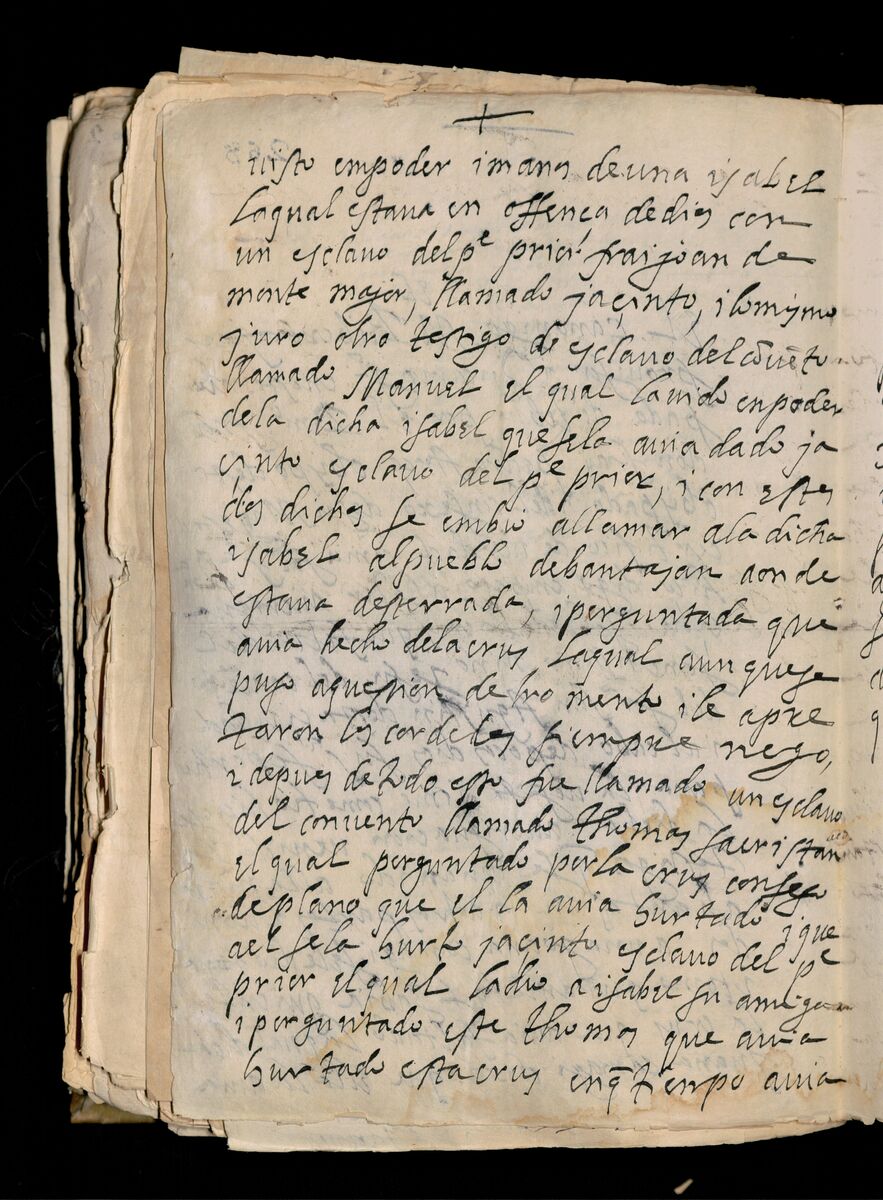 +
uisto empoder i manos de una isabel
laqual estaua en offença de dios con
un esclauo del pe prior fraijoan de
monte major, llamado jaçinto, i lo mismo
juro otro testigo de esclauo del cōuēto
llamado Manuel el qual la uido enpoder
dela dicha isabel que se la auia dado ja
çinto esclauo del pe prior, i con estos
dos dichos se embio allamar ala dicha
isabel alpueblo debantajan aonde
estaua desterrada, i perguntada que
auia hecho delacrus laqual aunquese
puso aquestion de tromento i le apre
taron los cordeles siempre nego,
i depues de todo esto fue llamado un esclauo
del conuento llamado thomas sacristan
el qual perguntado por la crus confeso
deplano que el la auia hurtado i que
ael sela hurto jaçinto esclauo del pe
prior el qual ladio a isabel su amiga
i perguntado este thomas que auia
hurtado esta crus enq̄ tienpo auia